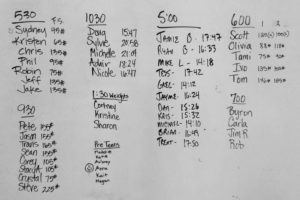 530 F.S.
Sydney 95#
Kristen 65#
Chris 135#
Phil 95#
Robin 75#
Jeff 135#
Jake 135#
930
Pete 155#
Jason 155#
Travis 165#
Sean 155#
Corey 105#
Stacy 105#
Crystal 75#
Steve 225#
1030
Doug 15:47
Sylvie 20:58
Michelle 21:09
Adair 18:24
Nicole 16:47
1:30 Weights
Courtney
Kristine
Sharon
Pre Teens
Natalie
Katie
Aubrey
Anna
Kait
Megan
5:00
Jamie B - 17:47
Ruth B - 16:33
Mike L - 14:18
Tros - 17:42
Gael - 14:12
Jayme - 16:24
Dan - 15:26
Kais - 15:32
Michael - 14:10
Brian - 16:49
Trent - 17:50
600 1 2
Scott
Olivia 88# 118#
Tami 75# 90#
Ivo 135# 155#
Tom 145# 185#
700
Byron
Carla
Jim R
Rob